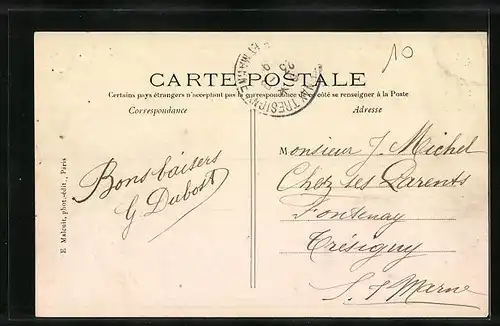 10
CARTE POSTALE
Certains pays étrangers n'acceptent pas la correspondance de ce côté se renseigner à la Poste
Correspondance
Adresse
Bons baisers
G Dubost
Monsieur J. Michel
Chez ses Parents
Fontenay
Trésigny
S. & Marne
E. Malcuit, phot.-édit., Paris